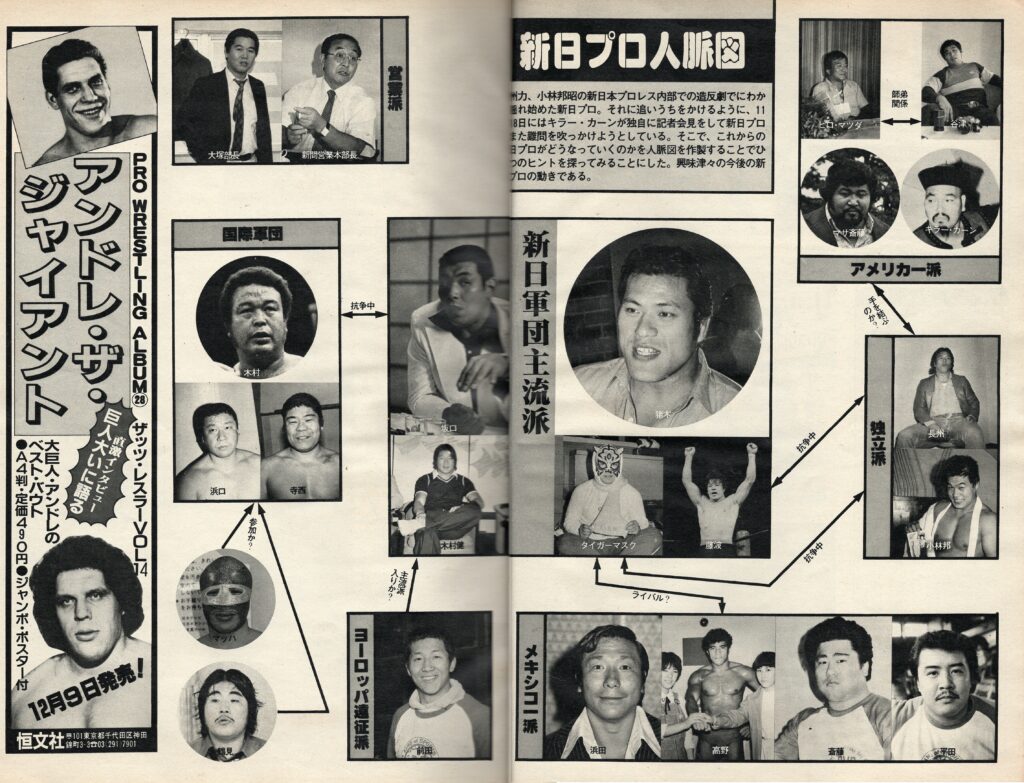 PRO WRESTLING ALBUM㉘ ザッツ・レスラーVOL.14
アンドレ・ザ・
ジャイアント
インタビュー
巨人大いに語る
大巨人・アンドレの
ベスト・バウト
●A4判・定価490円●ジャンボ・ポスター付
12月9日発売!
恒文社
〒101東京都千代田区神田
錦町3-3☎03・291・7901
大塚部長
新間営業本部長
新日プロ人脈図
州力、小林邦昭の新日本プロレス内部での造反劇でにわか
揺れ始めた新日プロ。それに追いうちをかけるように、11
8日にはキラー・カーンが独自に記者会見をして新日プロ
また難問を吹っかけようとしている。そこで、これからの
日プロがどうなっていくのかを人脈図を作製することでひ
つのヒントを探ってみることにした。興味津々の今後の新
プロの動きである。
ヒロ・マツダ
師弟
関係
谷津
マサ斎藤
キラー・カーン
アメリカ一派
手を結ぶ
のか?
国際軍団
木村
浜口
寺西
抗争中
坂口
木村健
新日軍団主流派
猪木
タイガーマスク
藤波
抗争中
抗争中
独立派
長州
小林邦
参加か?
マッハ
鶴見
主流派
入りか?
ヨーロッパ遠征派
前田
ライバル?
メキシコ一派
浜田
高野
斎藤
平田